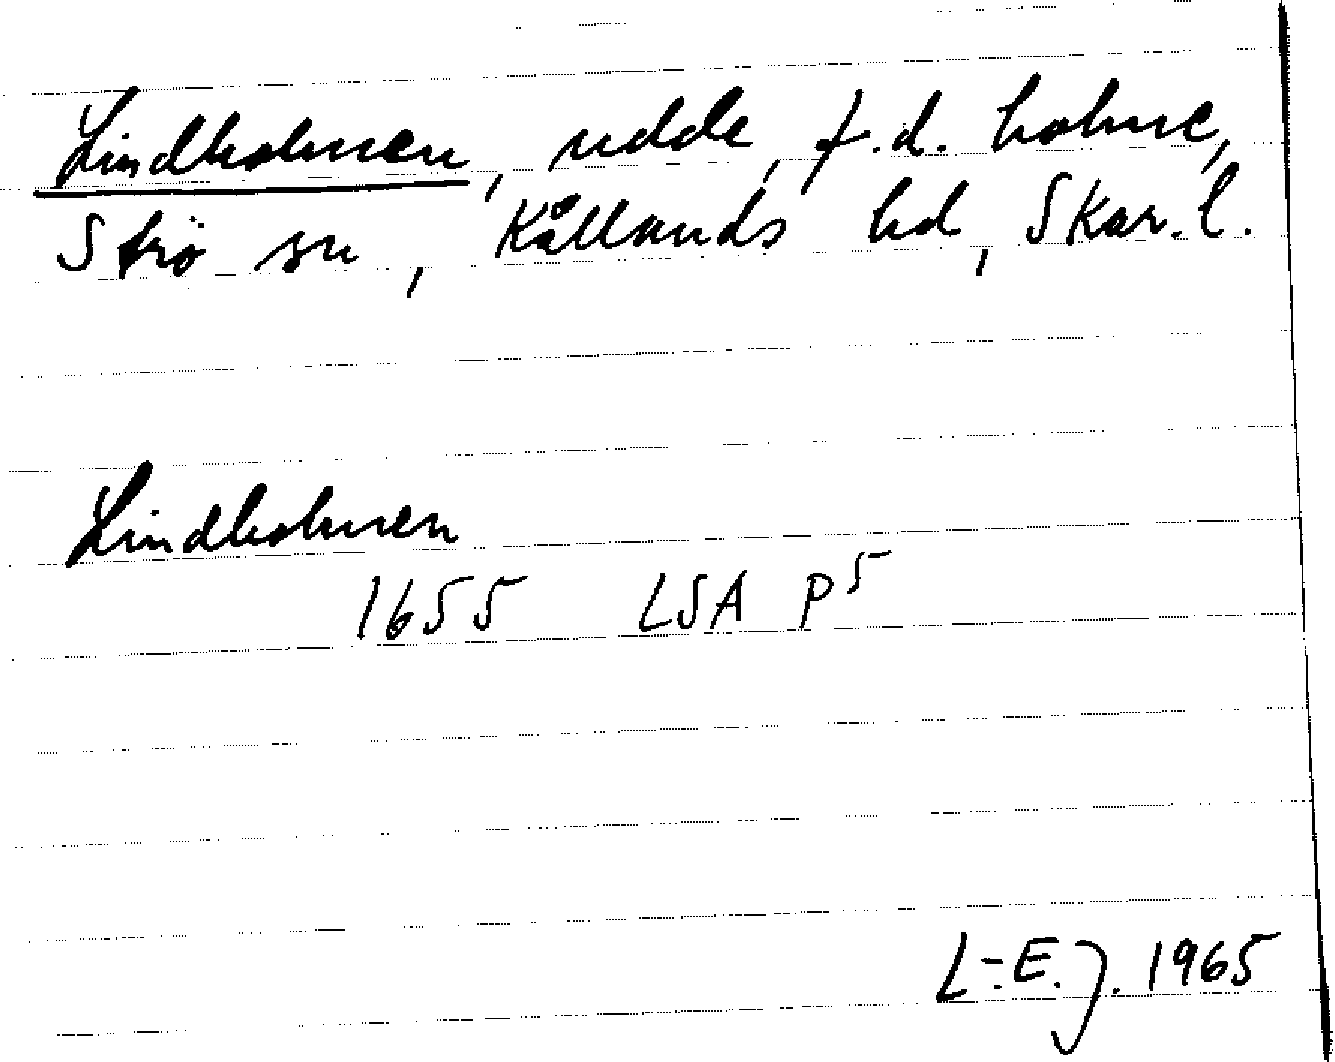 Lindholmen, udde, f.d. holme,
Strö sn, Kållands hd, Skar.l.
Lindholmen
1655 LSA P5
L-E.J. 1965